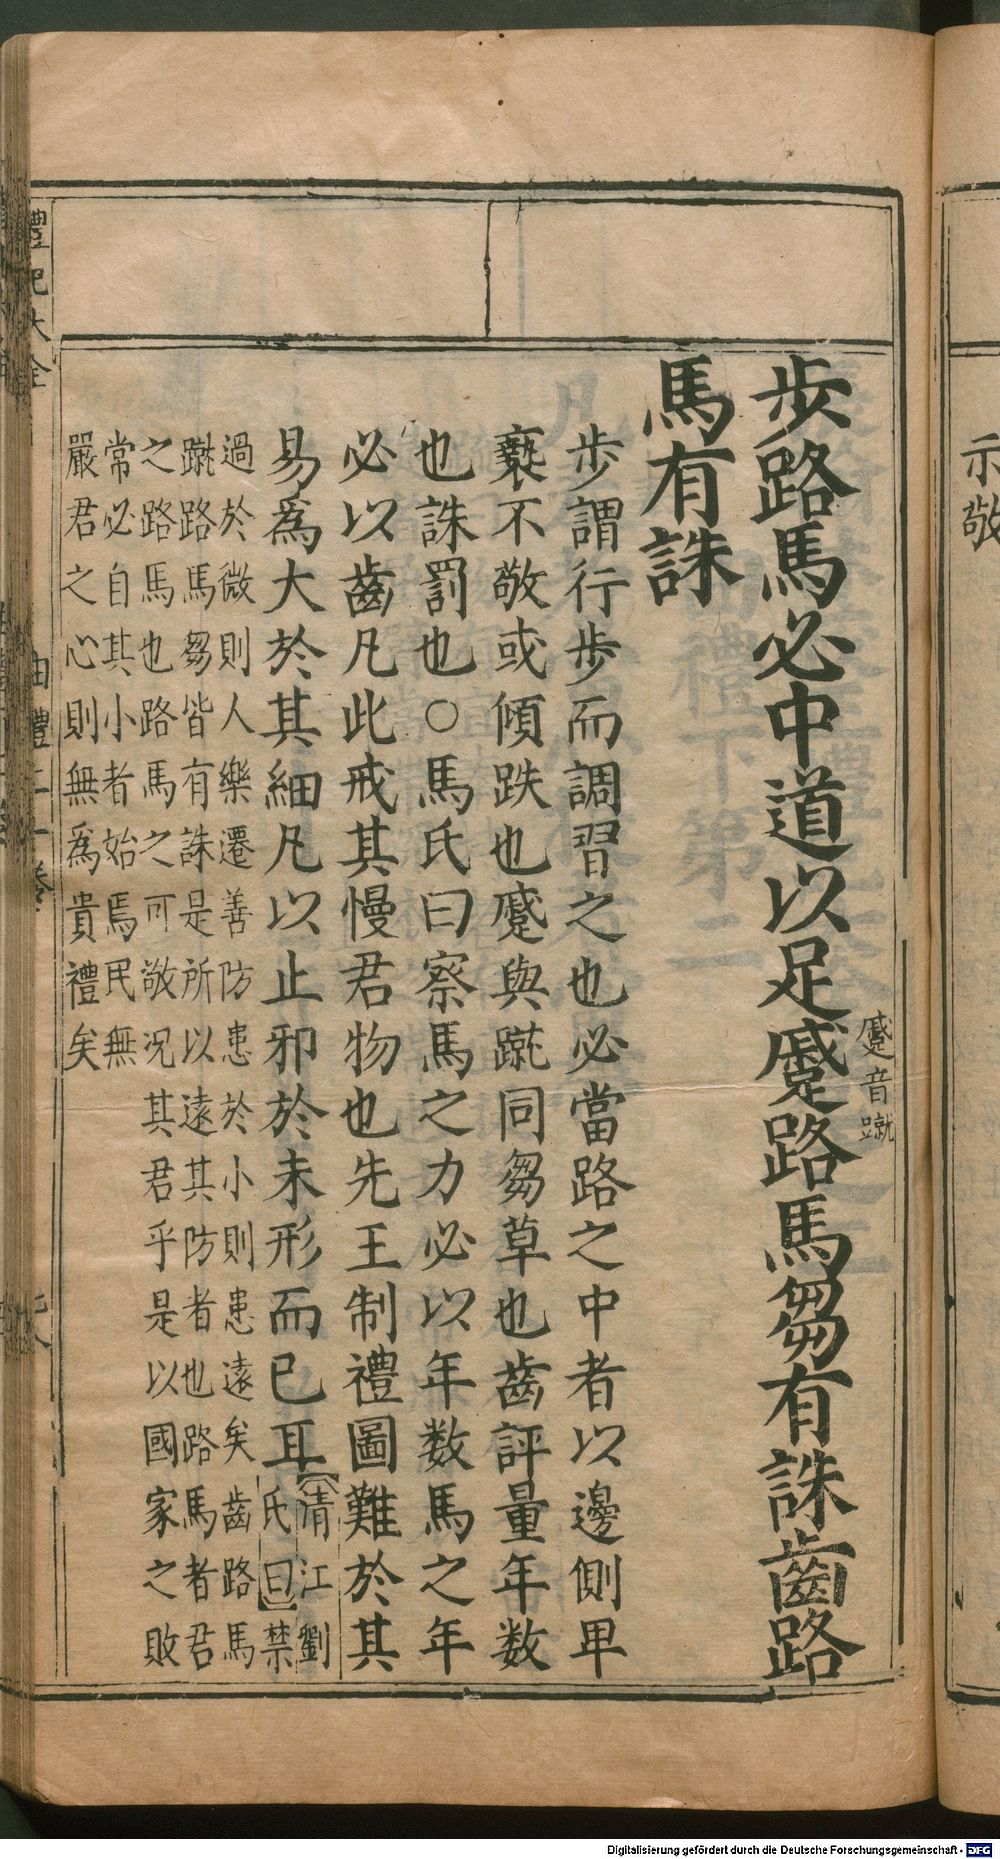 步路馬必中道以足蹙路馬芻有誅齒路
蹙音蹴
馬有誅
步謂行步而調習之也必當路之中者以邊側卑
褻不敬或傾跌也蹙與蹴同芻草也齒評量年数
也誅罰也○馬氏曰察馬之力必以年数馬之年
必以齒凡此戒其慢君物也先王制禮圖難於其
易爲大於其細凡以止邪於未形而已耳
清江劉
氏曰禁
過於微則人樂遷善防患於小則患遠矣齒路馬
蹴路馬芻皆有誅是所以遠其防者也路馬者君
之路馬也路馬之可敬况其君乎是以國家之敗
常必自其小者始焉民無
嚴君之心則無爲貴禮矣
禮記大全
曲禮上
示敬
Digitalisierung gefördert durch die Deutsche Forschungsgemeinschaft - DFG